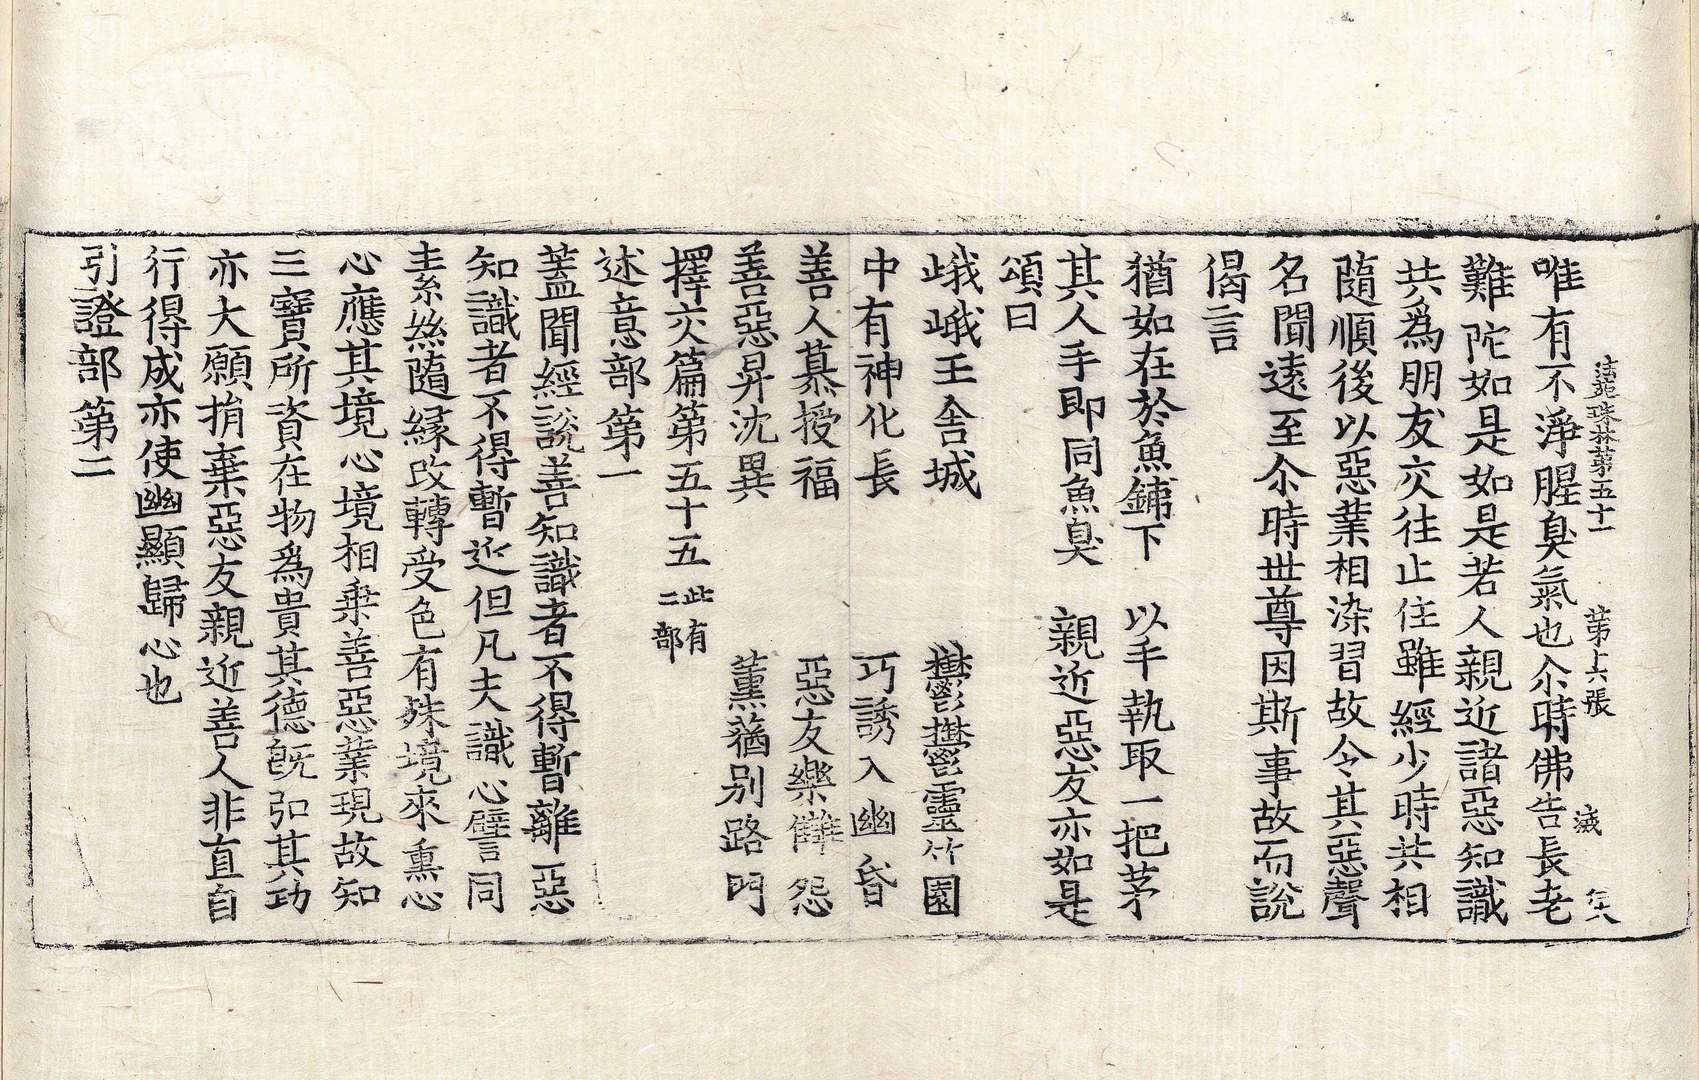 法苑珠林第五十一　第十六張　滅　年六
唯有不淨腥臭氣也尒時佛告長老
難陀如是如是若人親近諸惡知識
共爲朋友交往止住雖經少時共相
隨順後以惡業相染習故令其惡聲
名聞遠至尒時世尊因斯事故而說
偈言
猶如在於魚鋪下　以手執取一把茅
其人手即同魚臭　親近惡友亦如是
頌曰
峨峨王舍城　鬱鬱靈竹園
中有神化長　巧誘入幽昏
善人慕授福　惡友樂讎怨
善惡昇沈異　薰蕕别路門
擇交篇第五十五此有二部
述意部第一
蓋聞經說善知識者不得暫離惡
知識者不得暫近但凡夫識心譬同
素絲隨緣改轉受色有殊境來熏心
心應其境心境相乗善惡業現故知
三寶所資在物爲貴其德旣弘其功
亦大願捐棄惡友親近善人非直自
行得成亦使幽顯歸心也
引證部第二